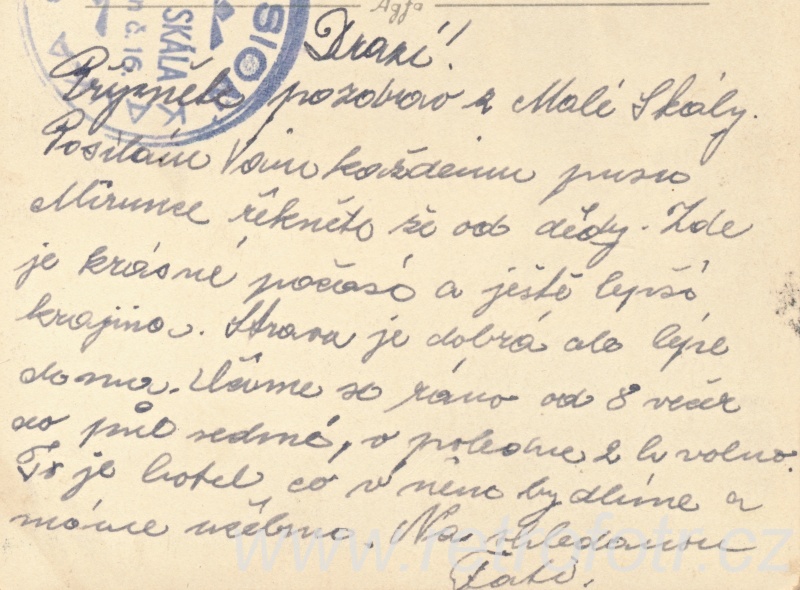 Agfa
SIO
SKÁLA
č. 16.
Drazí!
Příjměte pozdrav z Malé Skály.
Posílám Vám každému pusu
Mirunce řekněte že od dědy. Zde
je krásné počasí a ještě lepší
krajina. Strava je dobrá ale lépe
doma. Učíme se ráno od 8 večer
do půl sedmé, v poledne 2 h volno.
To je hotel co v něm bydlíme a
máme učebnu. Na shledanou
Táta.
www.retrofotr.cz